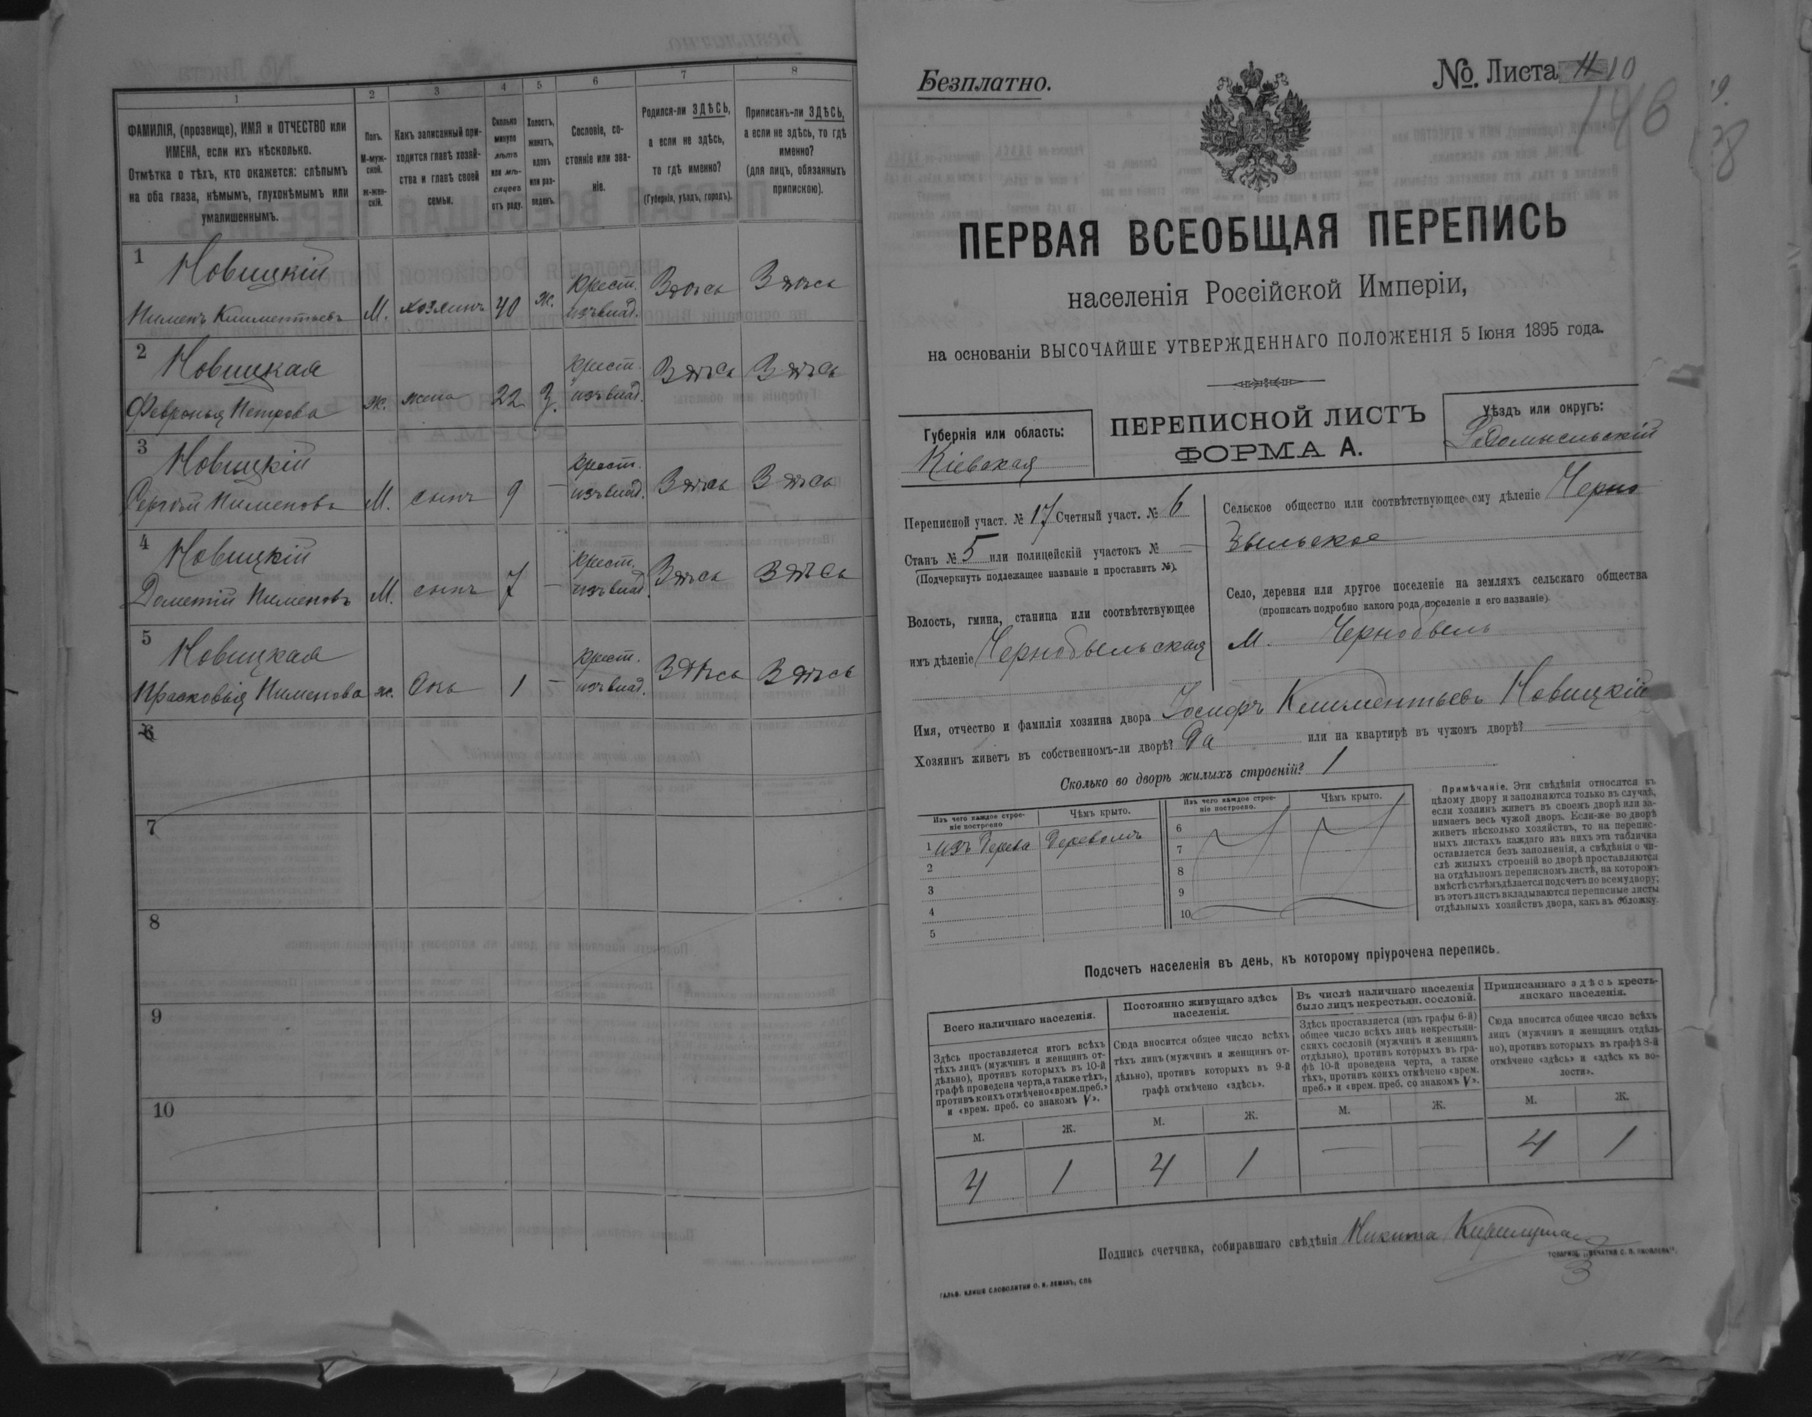 1 2 3 4 5 6 7 8
ФАМИЛІЯ, (прозвище), ИМЯ и ОТЧЕСТВО или
ИМЕНА, если ихъ нѣсколько.
Отмѣтка о тѣхъ, кто окажется: слѣпымъ
на оба глаза, нѣмымъ, глухонѣмымъ или
умалишеннымъ.
Полъ.
М-муж-
ской.
ж-жен-
скій.
Какъ записанный при-
ходится главѣ хозяй-
ства и главѣ своей
семьи.
Сколько
минуло
лѣтъ
или мѣ-
сяцевъ
отъ роду.
Холостъ,
женатъ,
вдовъ
или раз-
веденъ.
Сословіе, со-
стояніе или зва-
ніе.
Родился-ли ЗДѢСЬ,
а если не здѣсь,
то гдѣ именно?
(Губернія, уѣздъ, городъ).
Приписанъ-ли ЗДѢСЬ,
а если не здѣсь, то гдѣ
именно?
(для лицъ, обязанныхъ
припискою).
1 Новицкій
Пименъ Климентьевъ М. хозяинъ 40 ж. крест. изъ влад. Здѣсь Здѣсь
2 Новицкая
Февронья Петрова ж. жена 22 З. крест. изъ влад. Здѣсь Здѣсь
3 Новицкій
Сергѣй Пименовъ М. сынъ 9 – крест. изъ влад. Здѣсь Здѣсь
4 Новицкій
Дометій Пименовъ М. сынъ 7 – крест. изъ влад. Здѣсь Здѣсь
5 Новицкая
Прасковья Пименова ж. дочь 1 – крест. изъ влад. Здѣсь Здѣсь
6
7
8
9
10
Безплатно.
№. Листа 11 10
ПЕРВАЯ ВСЕОБЩАЯ ПЕРЕПИСЬ
населенія Россійской Имперіи,
на основаніи ВЫСОЧАЙШЕ УТВЕРЖДЕННАГО ПОЛОЖЕНІЯ 5 Іюня 1895 года.
Губернія или область:
Кіевская
ПЕРЕПИСНОЙ ЛИСТЪ
ФОРМА А.
Уѣздъ или округъ:
Радомысльскій
Переписной участ. № 17 Счетный участ. № 6
Станъ № 5 или полицейскій участокъ № —
(Подчеркнуть подлежащее названіе и проставить №).
Волость, гмина, станица или соотвѣтствующее
имъ дѣленіе Чернобыльская
Сельское общество или соотвѣтствующее ему дѣленіе Черно
быльское
Село, деревня или другое поселеніе на земляхъ сельскаго общества
(прописать подробно какого рода поселеніе и его названіе)
М. Чернобыль
Имя, отчество и фамилія хозяина двора Іосифъ Климентьевъ Новицкій
Хозяинъ живетъ въ собственномъ-ли дворѣ? Да или на квартирѣ въ чужомъ дворѣ? —
Сколько во дворѣ жилыхъ строеній? 1
Изъ чего каждое строе-
ніе построено
Чѣмъ крыто.
1 изъ дерева деревомъ
2
3
4
5
Изъ чего каждое строе-
ніе построено.
Чѣмъ крыто.
6
7
8
9
10
Примѣчаніе. Эти свѣдѣнія относятся къ
цѣлому двору и заполняются только въ случаѣ,
если хозяинъ живетъ въ своемъ дворѣ или за-
нимаетъ весь чужой дворъ. Если-же во дворѣ
живетъ нѣсколько хозяйствъ, то на перепис-
ныхъ листахъ каждаго изъ нихъ эта табличка
оставляется безъ заполненія, а свѣдѣнія о чи-
слѣ жилыхъ строеній во дворѣ проставляются
на отдѣльномъ переписномъ листѣ, на которомъ
вмѣстѣ съ тѣмъ дѣлается подсчетъ по всему двору;
въ этотъ листъ вкладываются переписные листы
отдѣльныхъ хозяйствъ двора, какъ въ обложку.
Подсчетъ населенія въ день, къ которому пріурочена перепись.
Всего наличнаго населенія.
Здѣсь проставляется итогъ всѣхъ
тѣхъ лицъ (мужчинъ и женщинъ от-
дѣльно), противъ которыхъ въ 10-й
графѣ проведена черта, а также тѣхъ,
противъ коихъ отмѣчено «врем. преб.»
и «врем. преб. со знакомъ V».
М. Ж.
4 1
Постоянно живущаго здѣсь
населенія.
Сюда вносится общее число всѣхъ
тѣхъ лицъ (мужчинъ и женщинъ от-
дѣльно), противъ которыхъ въ 9-й
графѣ отмѣчено «здѣсь».
М. Ж.
4 1
Въ числѣ наличнаго населенія
было лицъ некрестьян. сословій.
Здѣсь проставляется (изъ графы 6-й)
общее число всѣхъ лицъ некрестьян-
скихъ сословій (мужчинъ и женщинъ
отдѣльно), противъ которыхъ въ гра-
фѣ 10-й проведена черта, а также
тѣхъ, противъ коихъ отмѣчено «врем.
преб.» и «врем. преб. со знакомъ V».
М. Ж.
— —
Приписаннаго здѣсь кресть-
янскаго населенія.
Сюда вносится общее число всѣхъ
лицъ (мужчинъ и женщинъ отдѣль-
но), противъ которыхъ въ графѣ 8-й
отмѣчено «здѣсь» и «здѣсь къ во-
лости».
М. Ж.
4 1
Подпись счетчика, собиравшаго свѣдѣнія Никита
ТОВАРИЩ. „ПЕЧАТНЯ С. П. ЯКОВЛЕВА“.
ГАЛЬВ. КЛИШЕ СЛОВОЛИТНИ О. И. ЛЕМАНЪ, СПБ